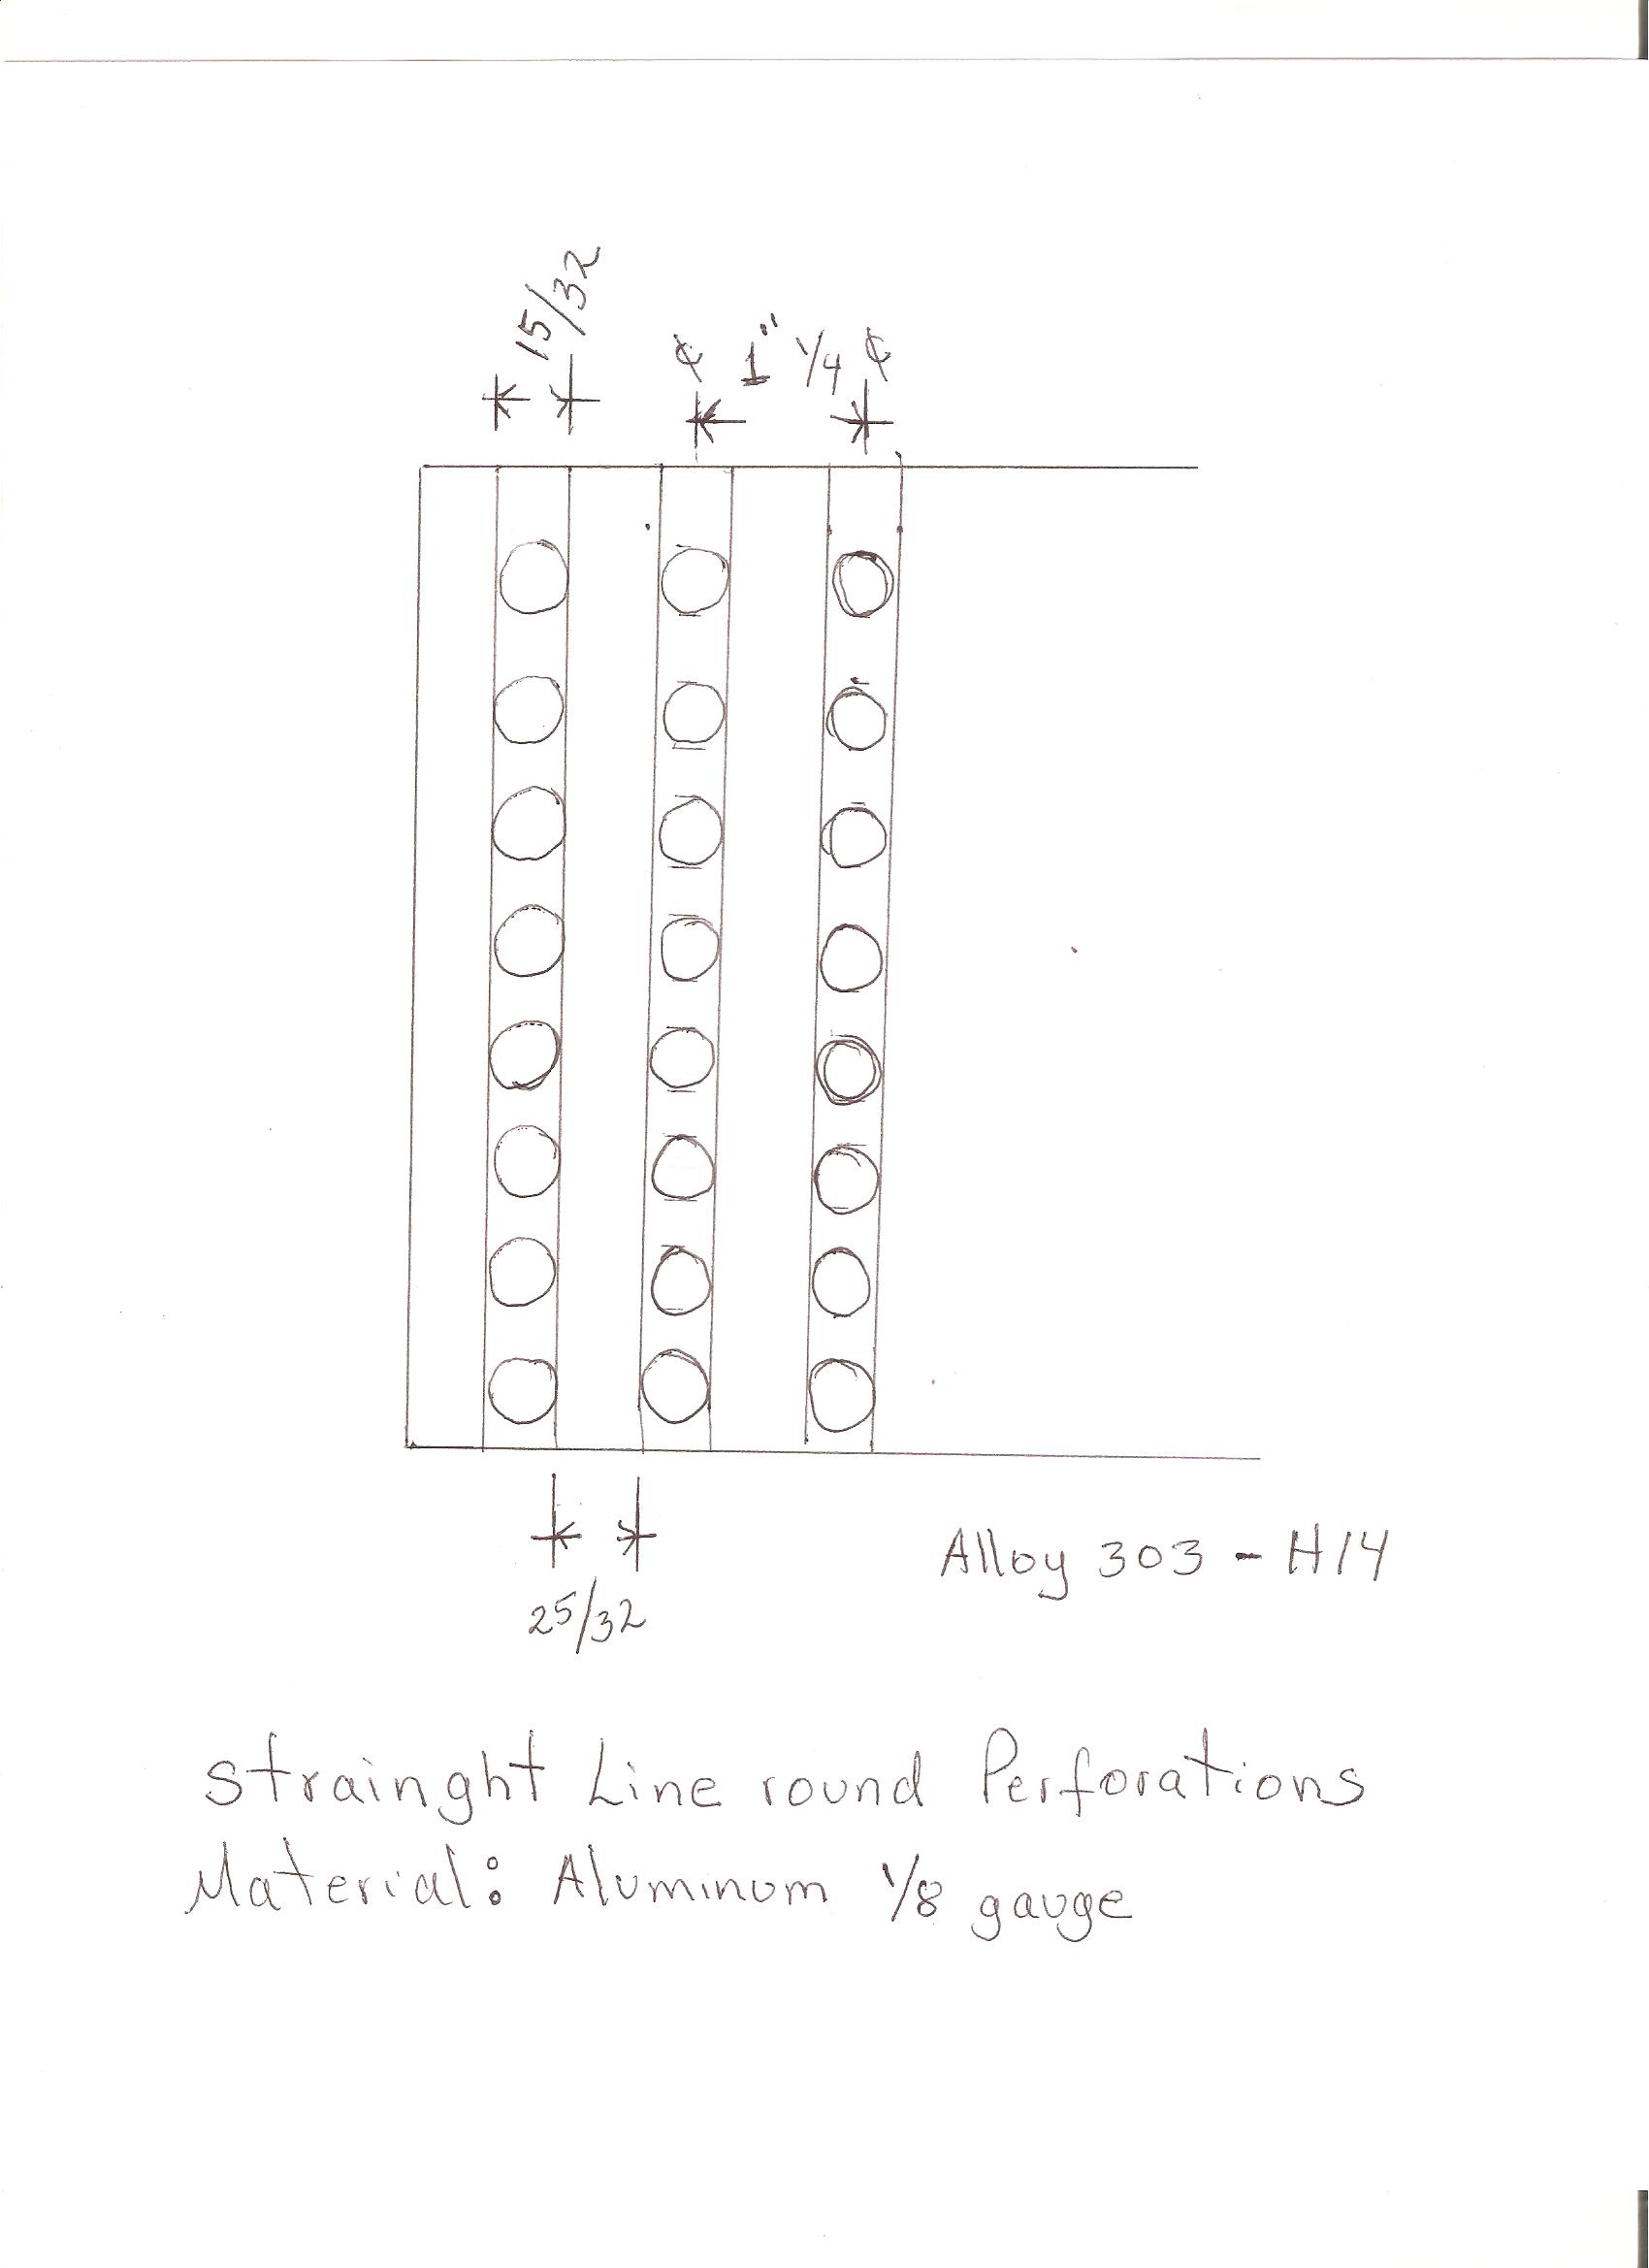 15/32
¢ 1" 1/4 ¢
25/32
Alloy 303 - H14
Strainght Line round Perforations
Material: Aluminum 1/8 gauge